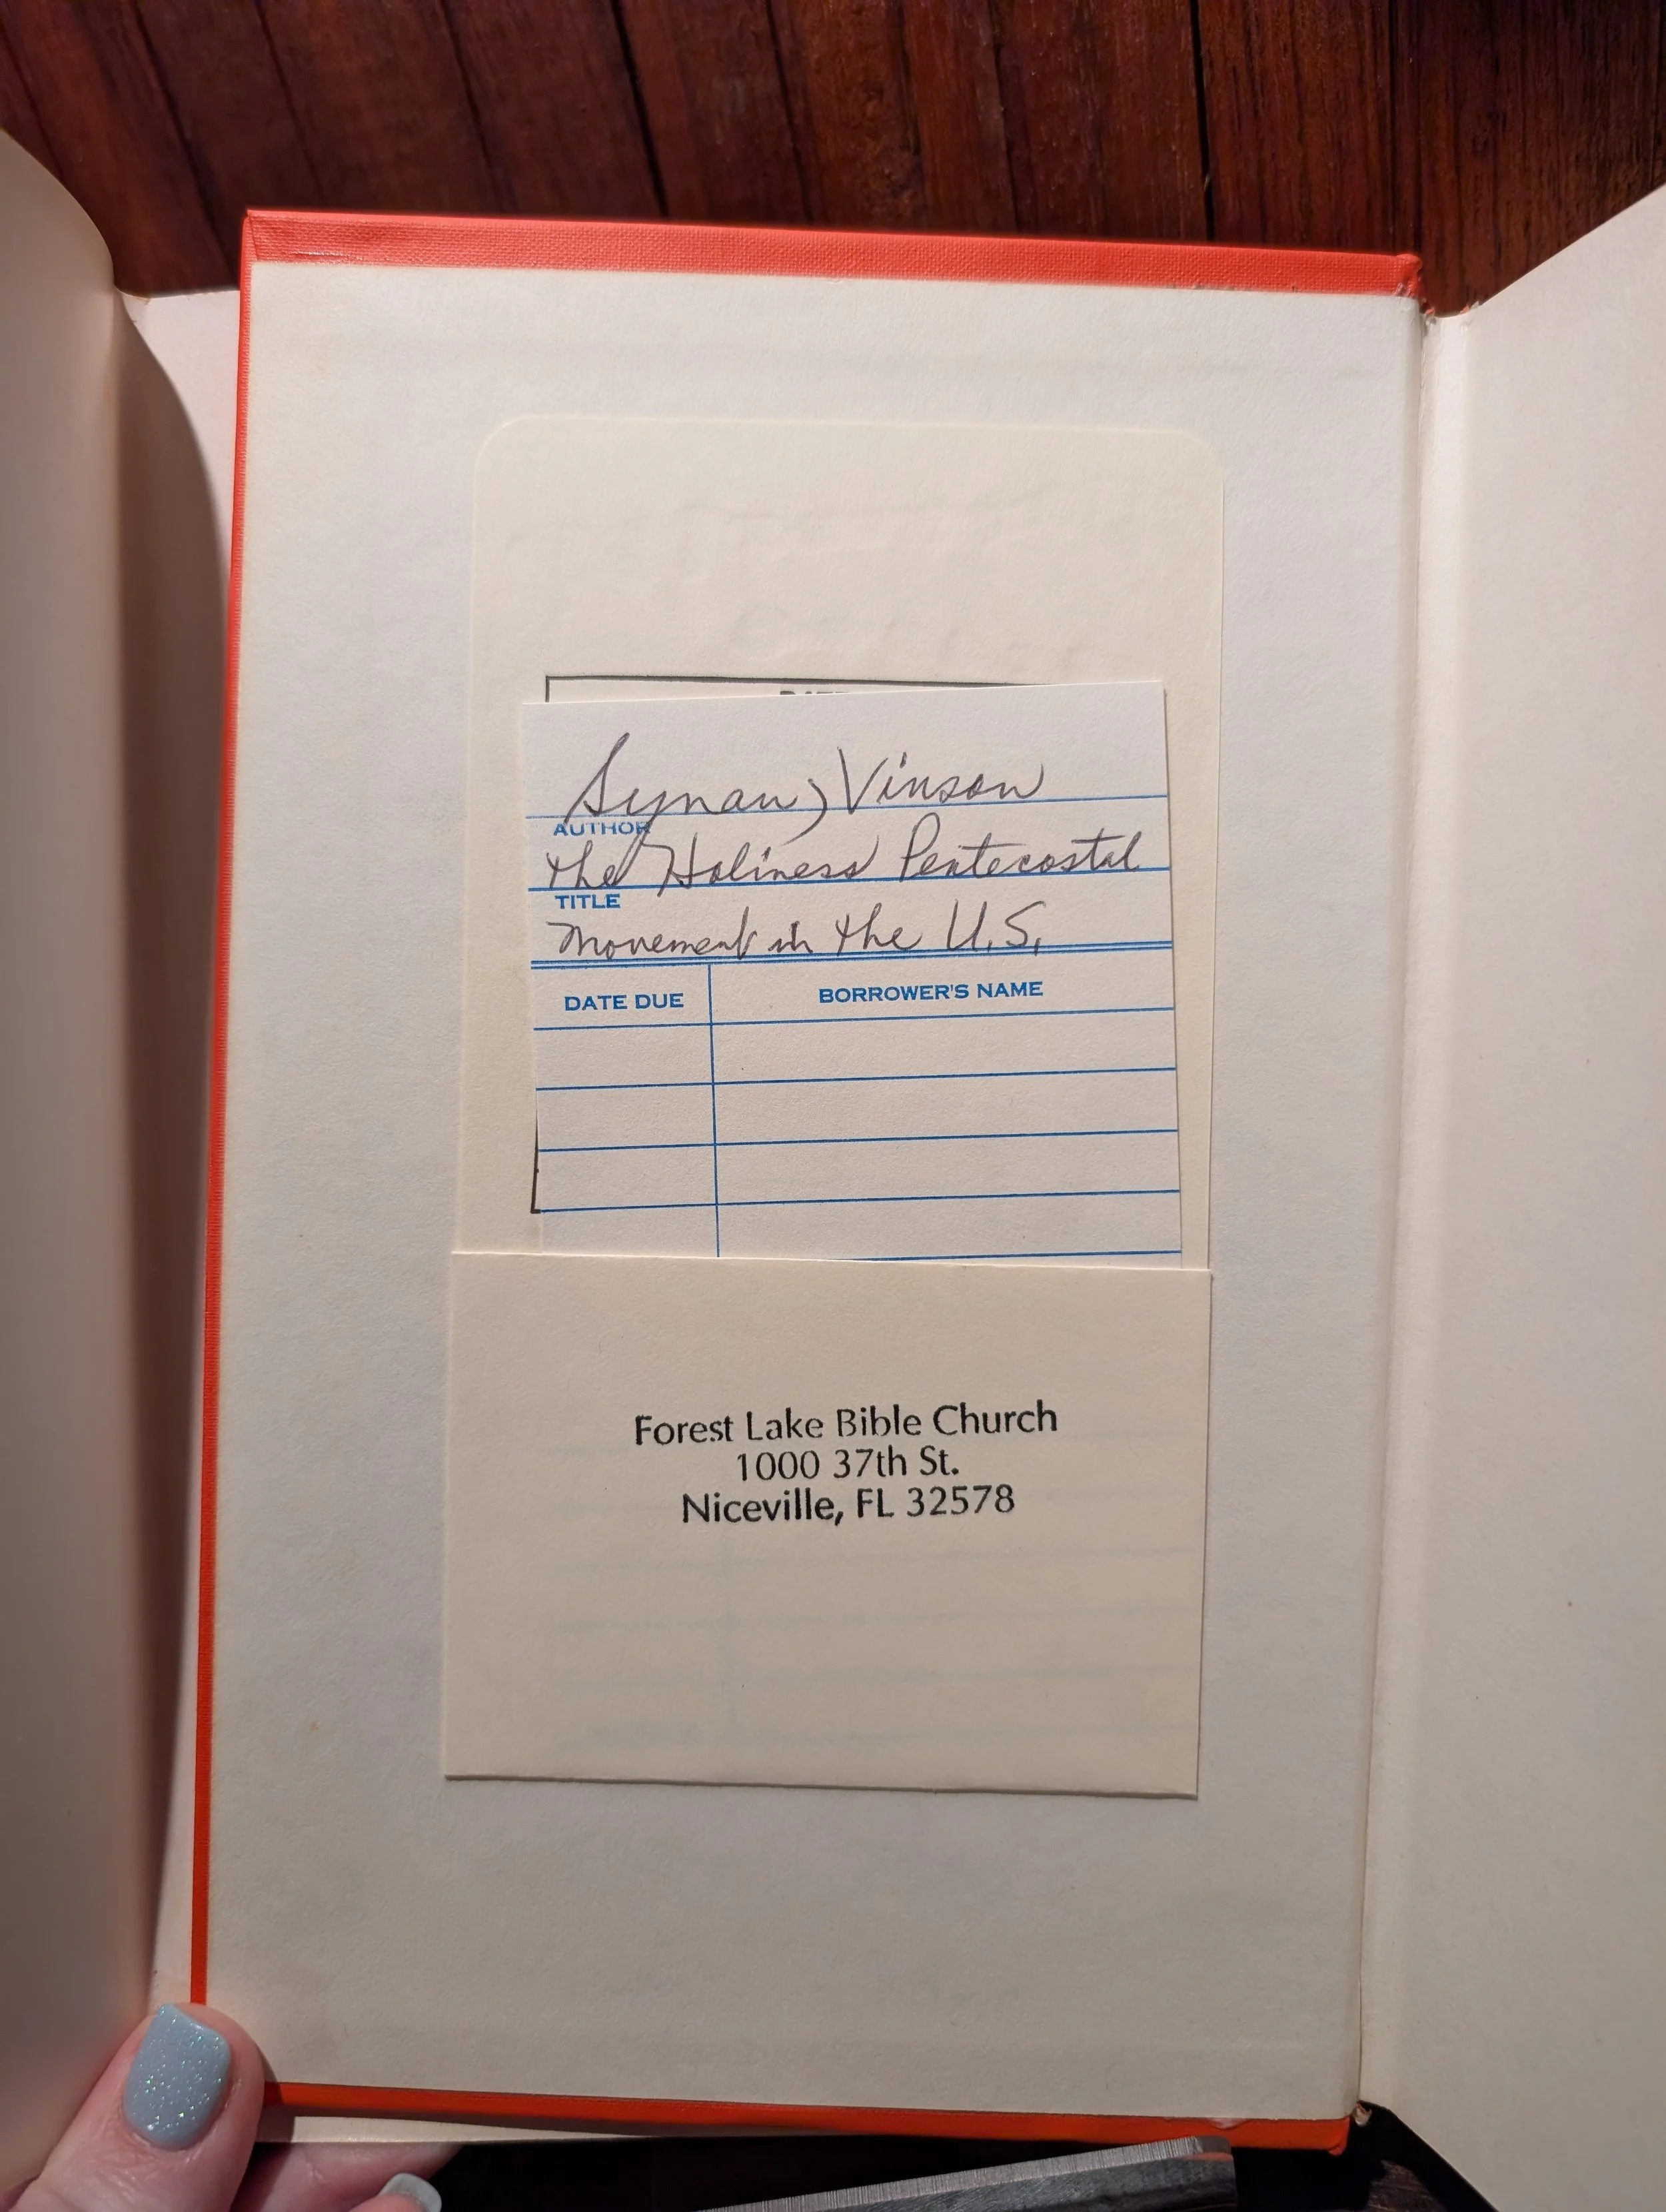 Synan, Vinson
AUTHOR
the Holiness Pentecostal
TITLE
Movement in the U.S.
DATE DUE BORROWER'S NAME
Forest Lake Bible Church
1000 37th St.
Niceville, FL 32578